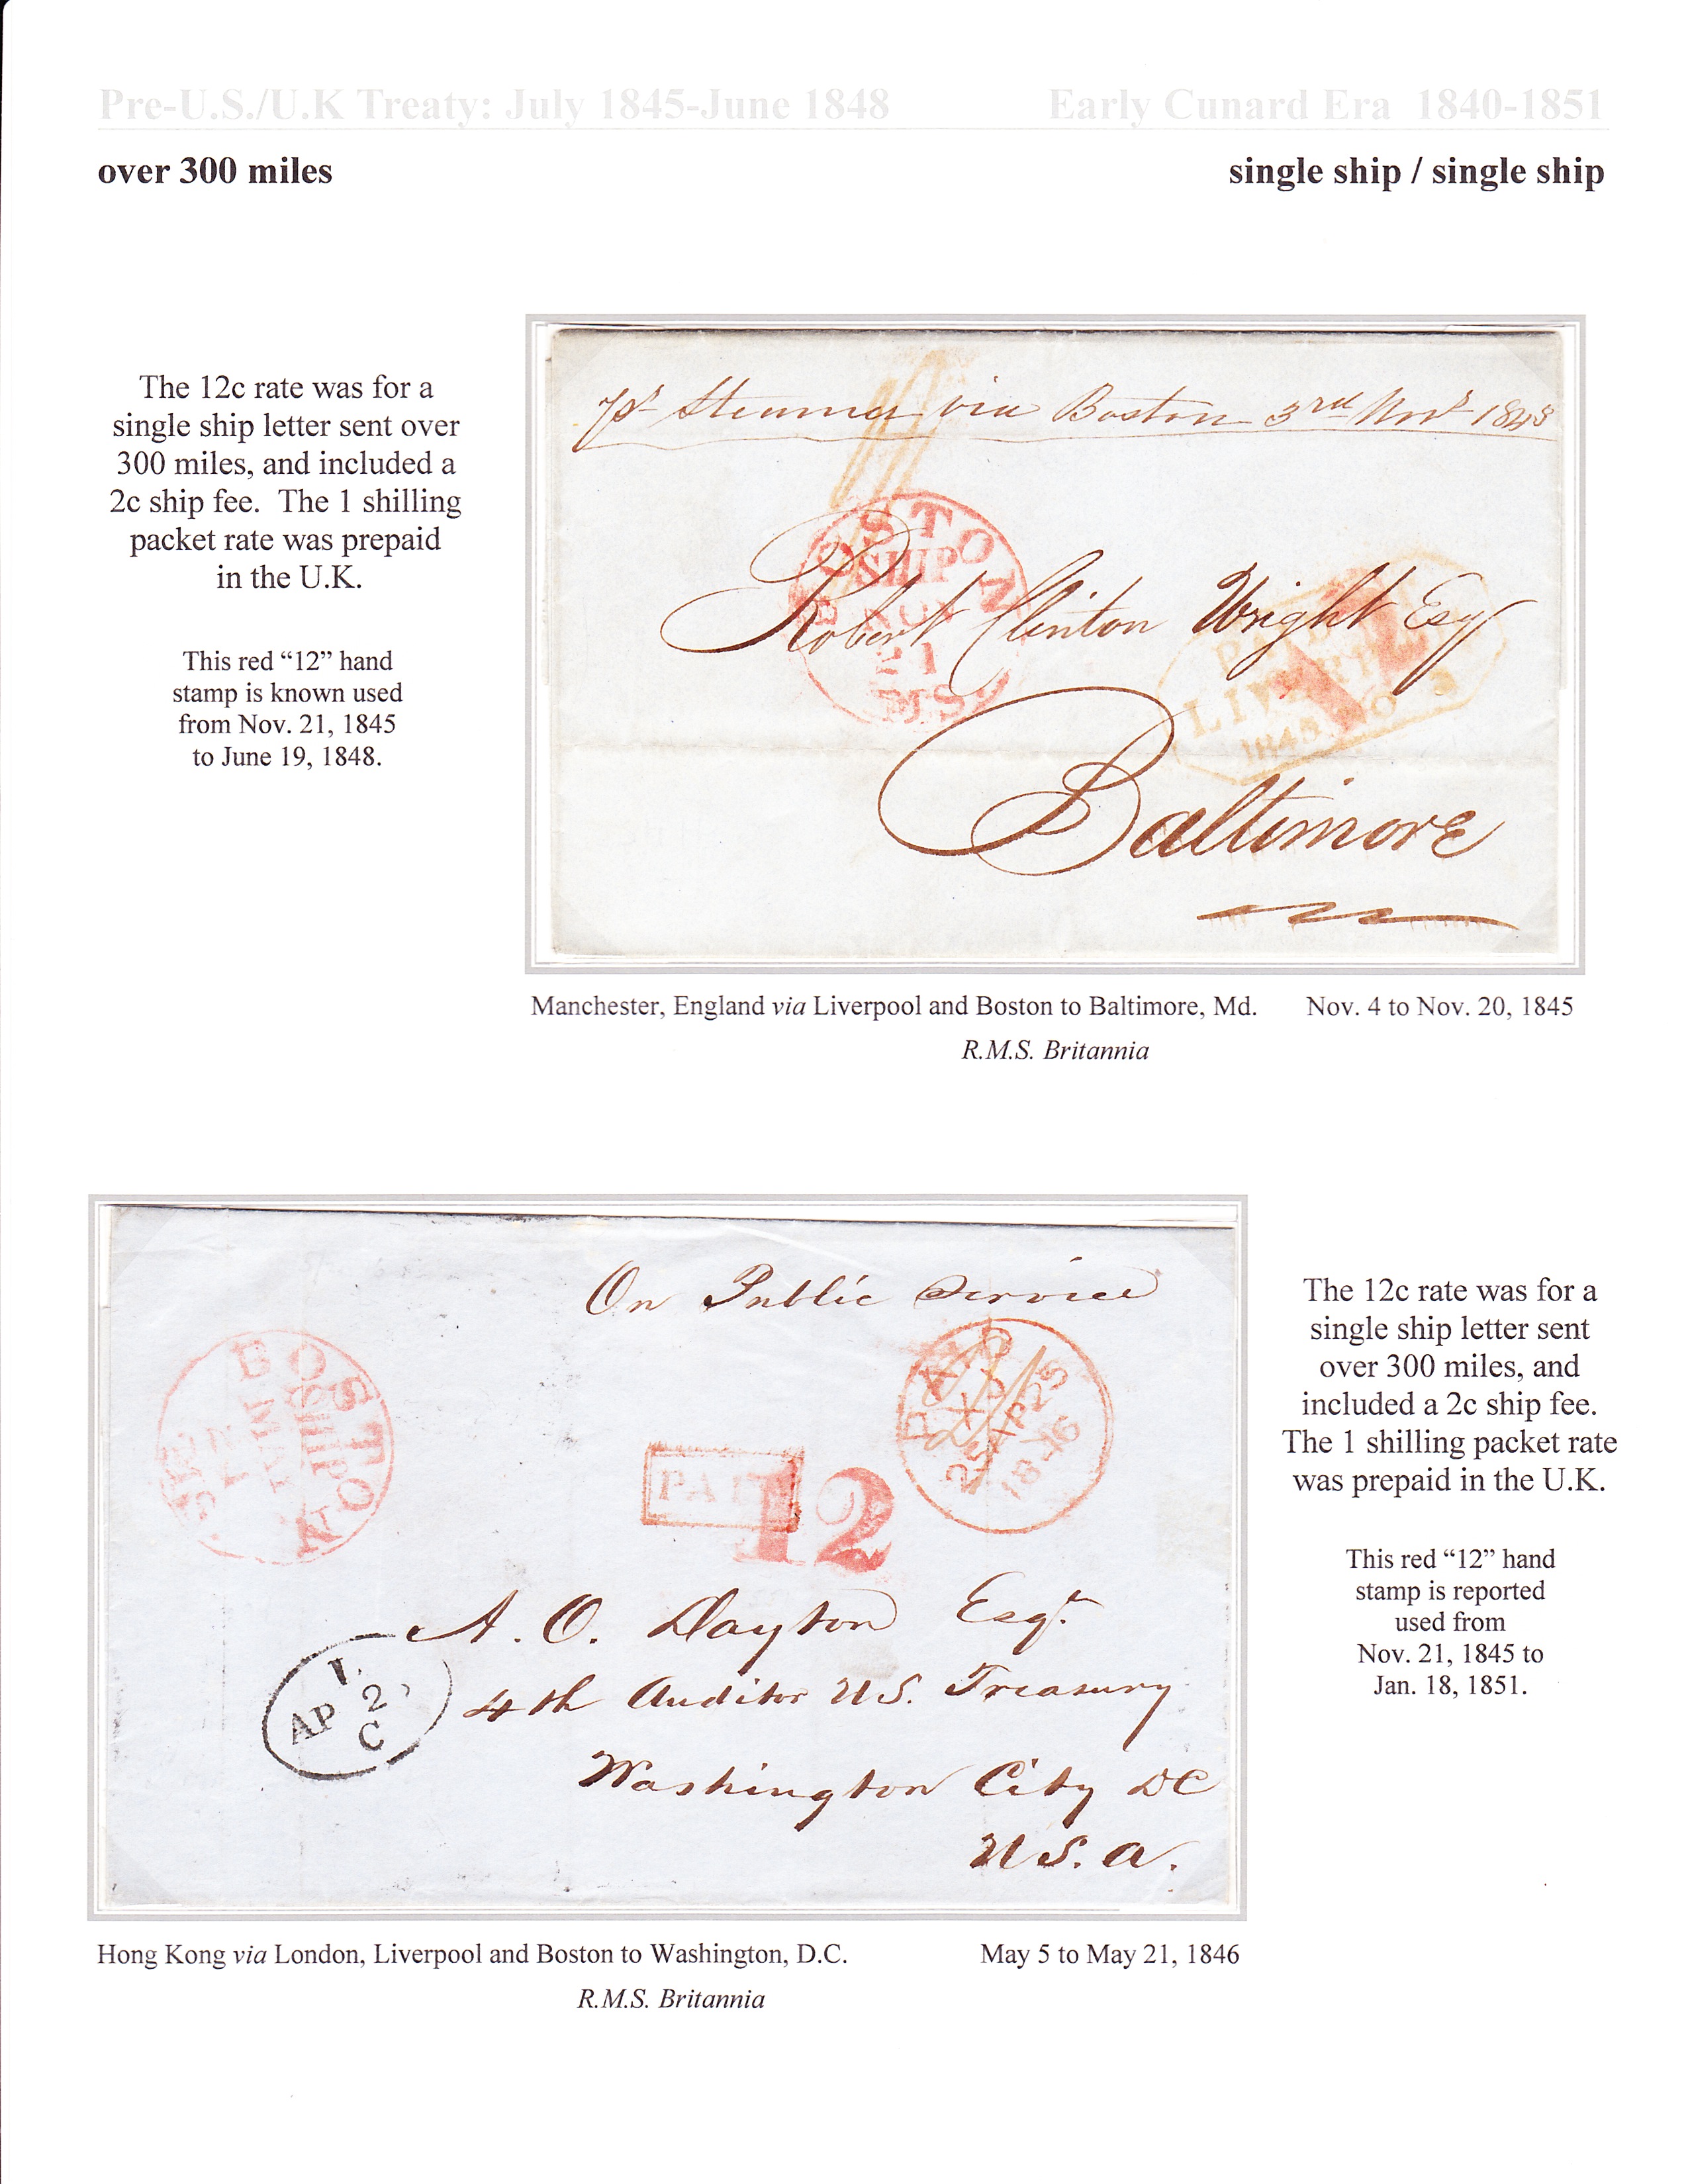 Pre-U.S./U.K Treaty: July 1845-June 1848
Early Cunard Era 1840-1851
over 300 miles
single ship / single ship
The 12c rate was for a
single ship letter sent over
300 miles, and included a
2c ship fee. The 1 shilling
packet rate was prepaid
in the U.K.
This red “12” hand
stamp is known used
from Nov. 21, 1845
to June 19, 1848.
via Boston 3rd Novr 1845
BOSTON
SHIP
NOV
21
MS
Robert Clinton Wright Esq
LIVERPOOL
1845
12
Baltimore
Manchester, England via Liverpool and Boston to Baltimore, Md. Nov. 4 to Nov. 20, 1845
R.M.S. Britannia
On Public Service
BOSTON
SHIP
MAY
PAID
25AP25
1846
PAID
12
A. O. Dayton Esqr
4th Auditor U.S. Treasury
AP 2
C
Washington City DC
U.S.A.
The 12c rate was for a
single ship letter sent
over 300 miles, and
included a 2c ship fee.
The 1 shilling packet rate
was prepaid in the U.K.
This red “12” hand
stamp is reported
used from
Nov. 21, 1845 to
Jan. 18, 1851.
Hong Kong via London, Liverpool and Boston to Washington, D.C. May 5 to May 21, 1846
R.M.S. Britannia